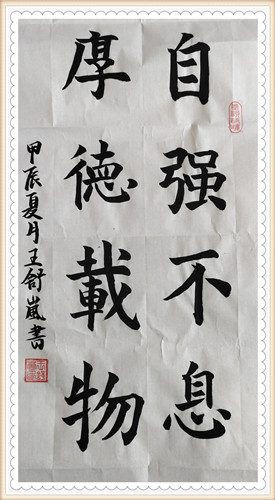 自强不息
厚德載物
甲辰夏月王舒嵐書